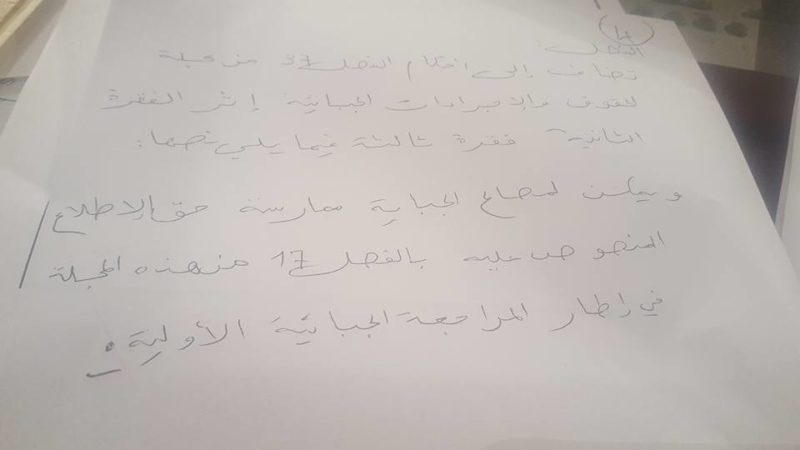 (4)
الفصل:
تضاف إلى أحكام الفصل 37 من مجلة
الحقوق والإجراءات الجبائية إثر الفقرة
الثانية فقرة ثالثة فيما يلي نصها:
ويمكن لمصالح الجباية ممارسة حق الإطلاع
المنصوص عليه بالفصل 17 من هذه المجلة
في إطار المراجعة الجبائية الأولية.